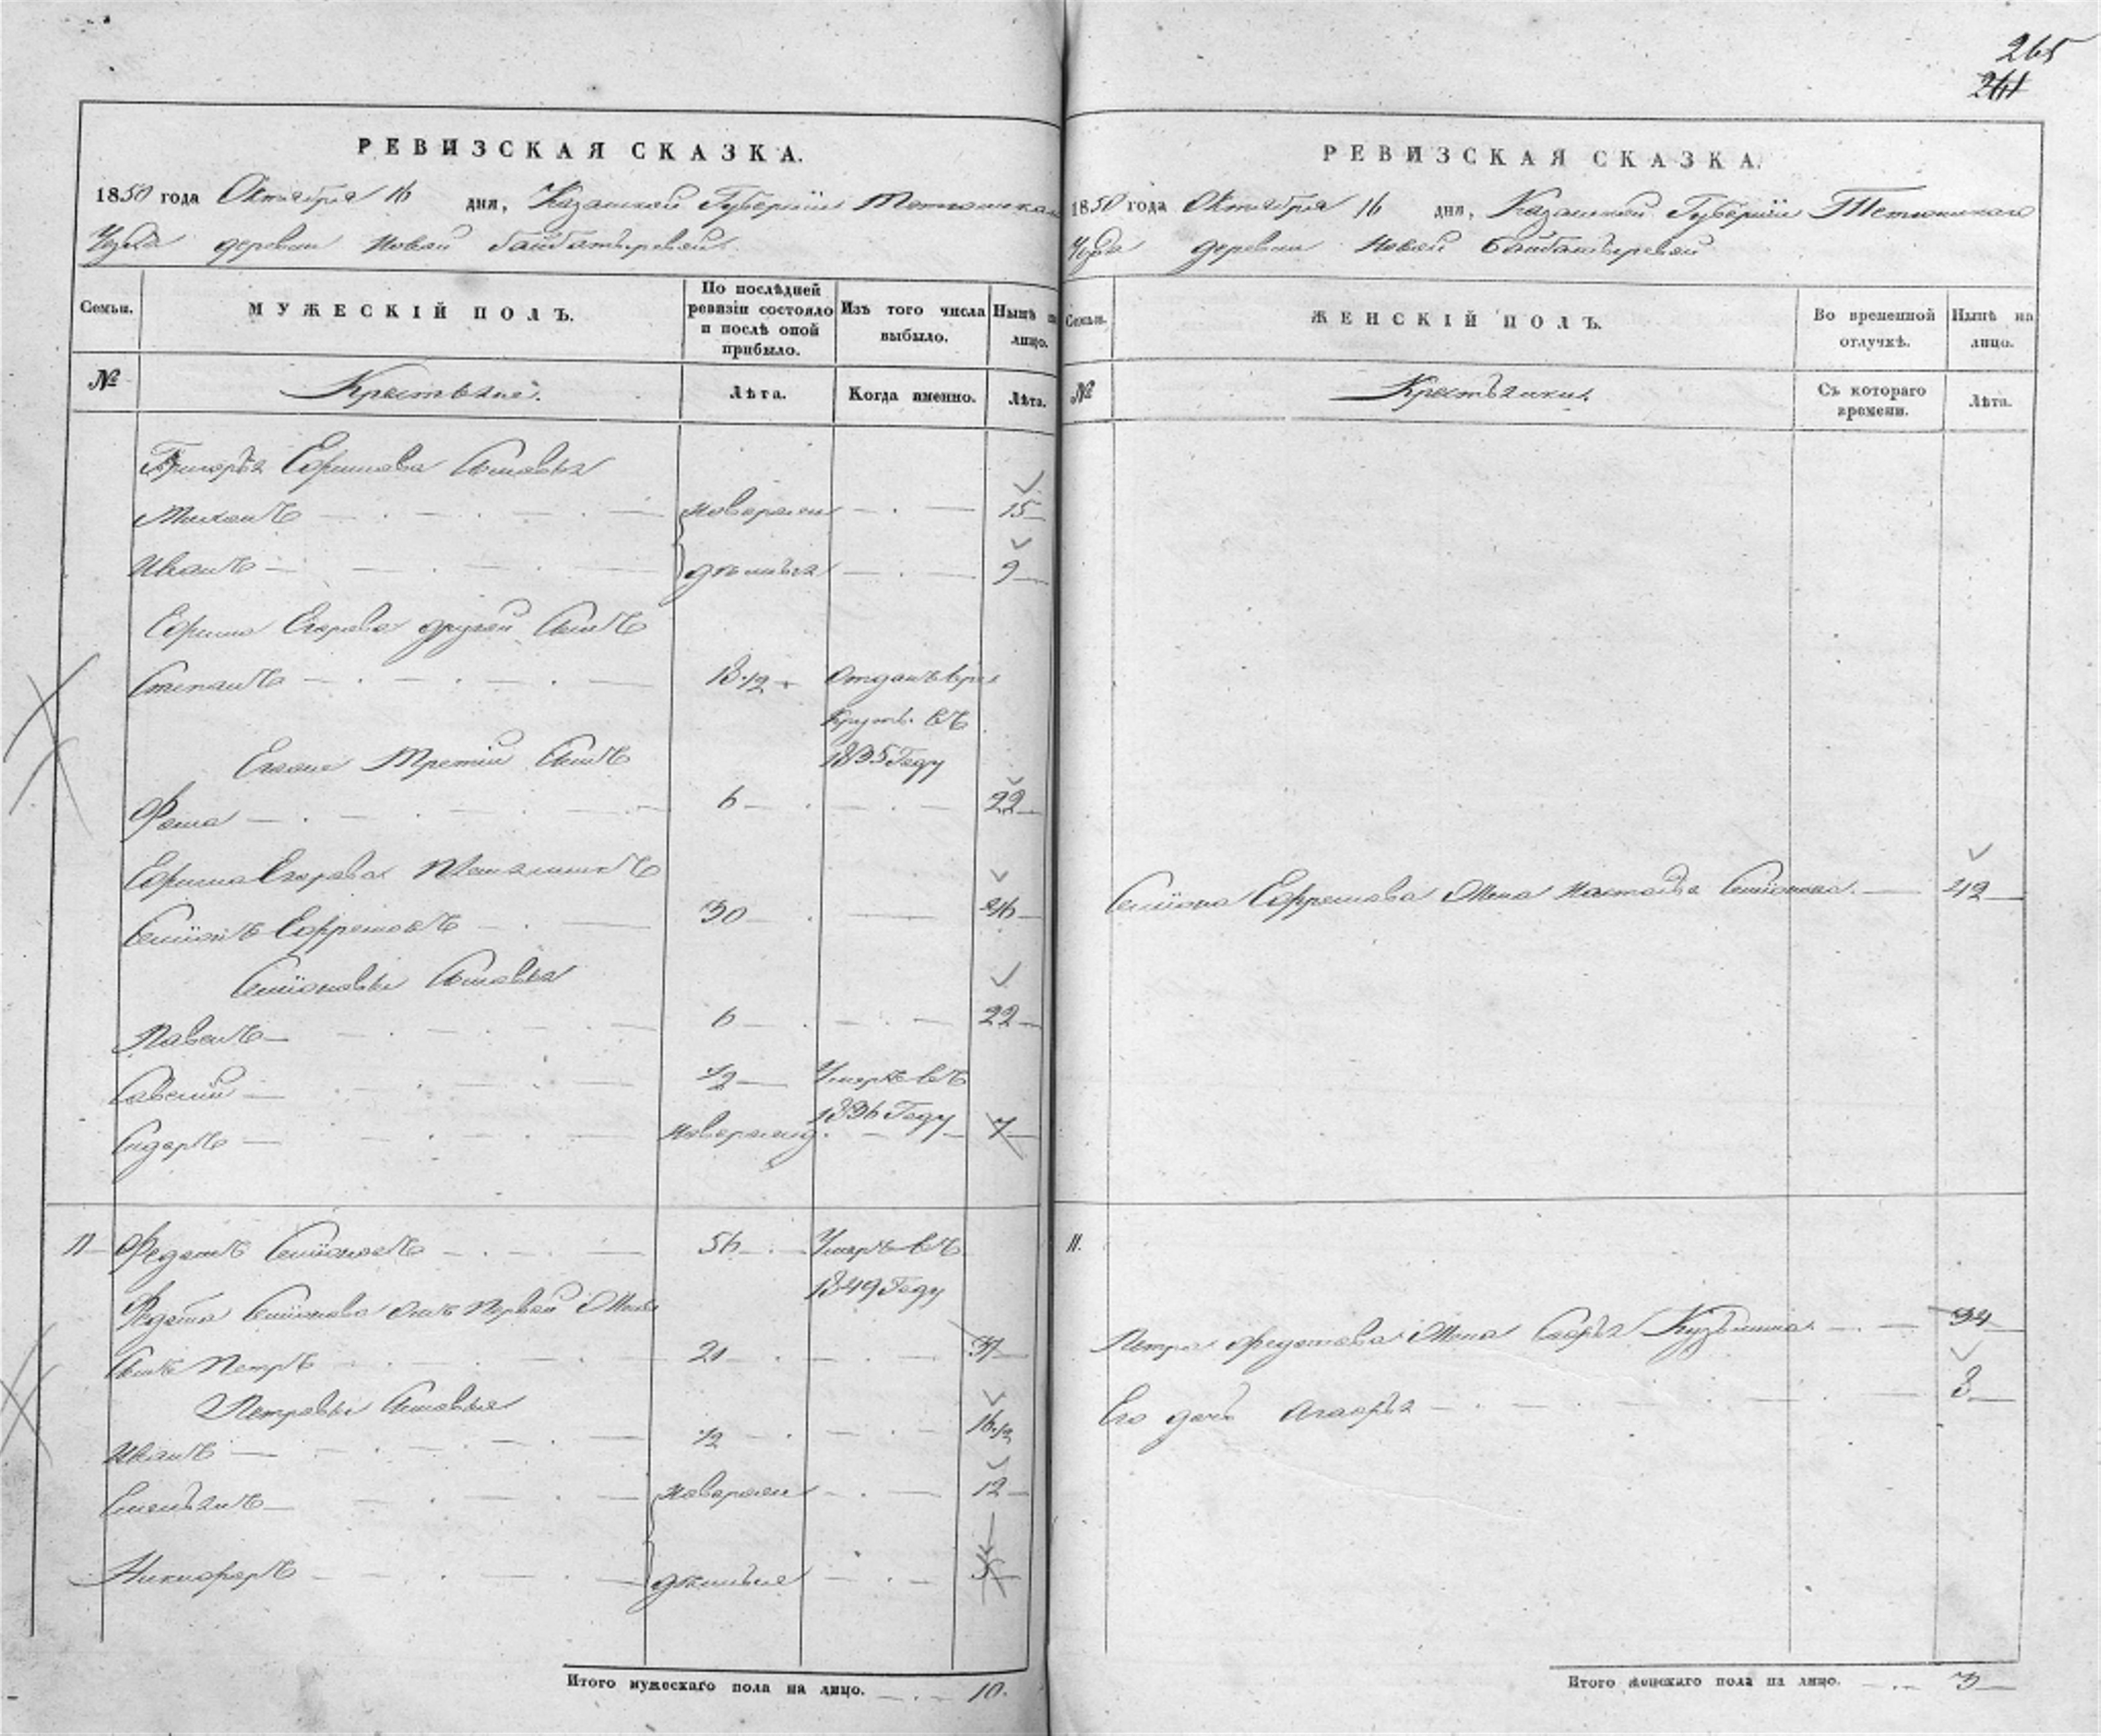 265
261
РЕВИЗСКАЯ СКАЗКА.
1850 года Октября 16 дня, Казанской Губерніи Тетюшскаго
Уѣзда деревни Новой Байбатыревой
Семьи.
МУЖЕСКІЙ ПОЛЪ.
По послѣдней ревизіи состояло и послѣ оной прибыло.
Изъ того числа выбыло.
Нынѣ на лицо.
№
Крестьяне.
Лѣта.
Когда именно.
Лѣта.
Григорья Ефимова Сыновья
Михаилъ — новорож — 15
Иванъ — денныя — 9
Ефима Егорова другой Сынъ
Степанъ — 18 1/2 Отданъ в рек
крутъ. въ
1835 Году
Третій Сынъ
Фома — 6 — 22
Ефима Егорова Племянникъ
Семіонъ Ефремовъ — 30 — 46
Семіоновы Сыновья
Павелъ — 6 — 22
Савелий — 1/2 — Умеръ въ
1836 Году
Сидоръ — новорожд. — 7
11 Федотъ Семіоновъ — 56 — Умеръ въ
1849 Году
Федота Семіонова отъ Первой Жены
Сынъ Петръ — 21 — 37
Петровы Сыновья
Иванъ — 1/2 — 16 1/2
Емельянъ — новорож — 12
Никифоръ — денные — 5
Итого мужескаго пола на лицо. — 10.
РЕВИЗСКАЯ СКАЗКА.
1850 года Октября 16 дня, Казанской Губерніи Тетюшскаго
Уѣзда деревни Новой Байбатыревой
Семьи.
ЖЕНСКІЙ ПОЛЪ.
Во временной отлучкѣ.
Нынѣ на лицо.
№
Крестьянки.
Съ котораго времени.
Лѣта.
Семіона Ефремова Жена Настасья Семіонова. — 42
11.
Петра Федотова Жена Кузьмина. — 34
Его дочь — 3
Итого женскаго пола на лицо. — 3